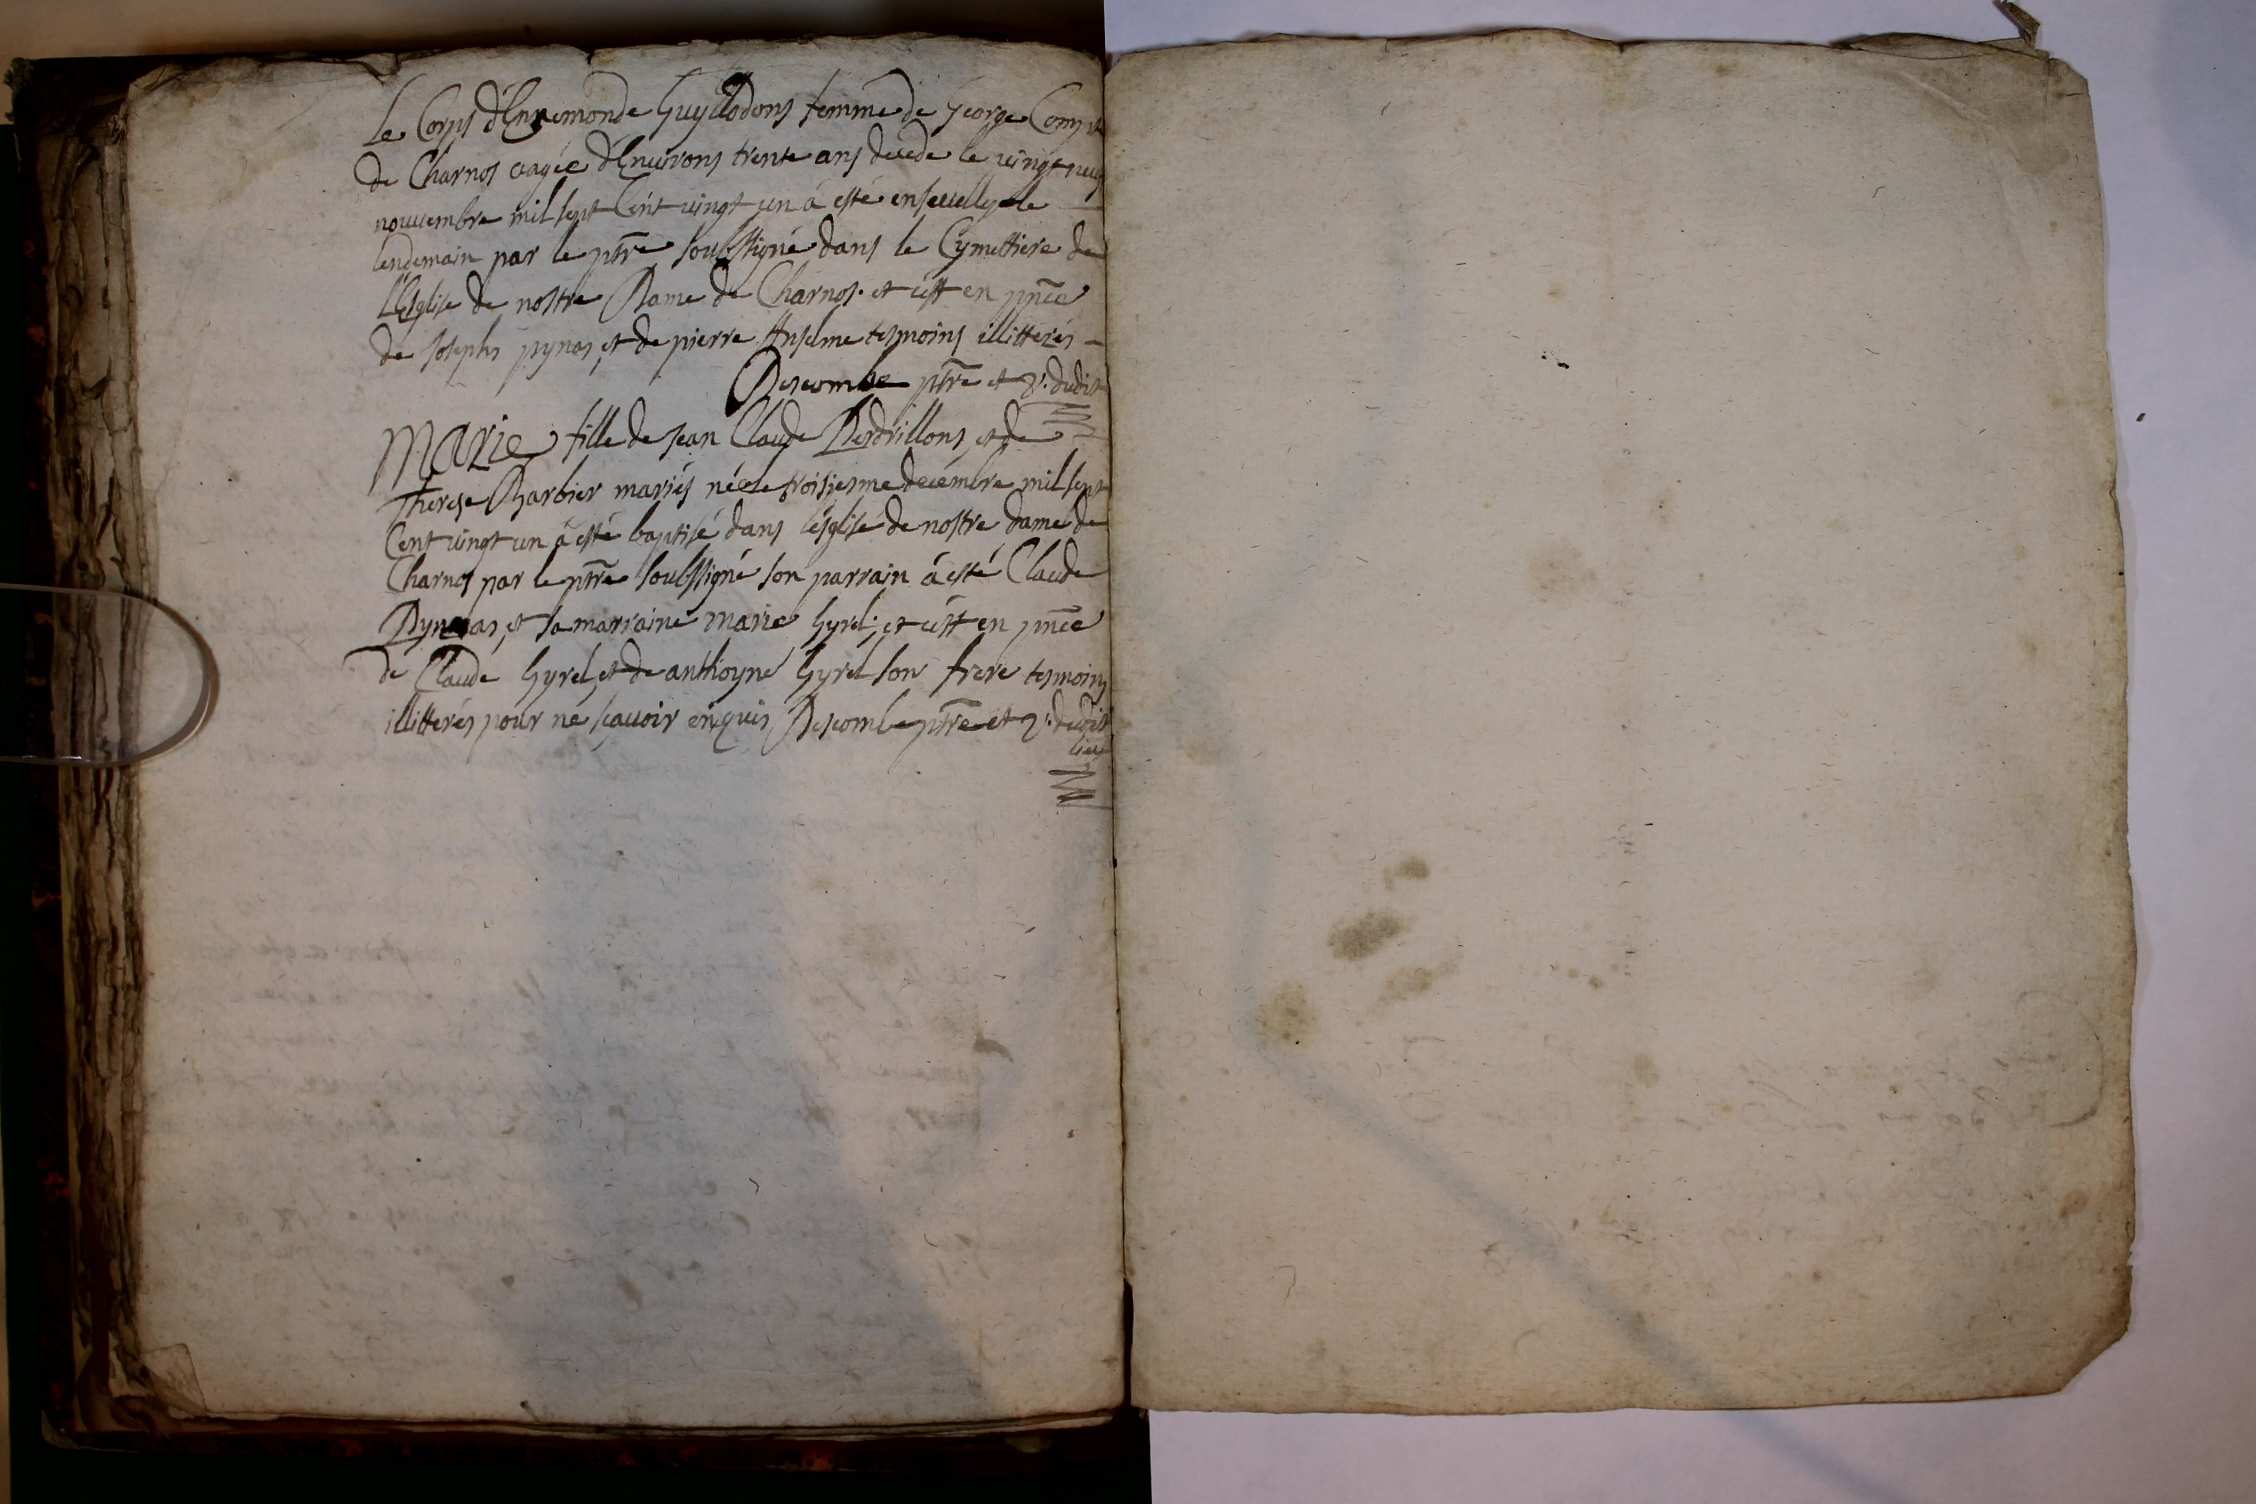 Le Corps d'Ennemonde Guyllodons femme de George
de Charnos aagée d'Environs trente ans decede le vingt neuf
nouuembre mil sept Cent vingt un á esté enseuelye le
lendemain par le ptre soubssigné dans le Cymettiere de
L'Esglise de nostre Dame de Charnos. et c'est en pnce
de Josephs pynas et de pierre Anselme tesmoins illitterés
Descombe ptre et v. dudit
Marie fille de Jean Claude Perdrillons et de
Therese Barbier mariés née le troisiesme decembre mil sept
Cent vingt un á esté baptisé dans l'esglise de nostre dame de
Charnos par le ptre soubssigné son parrain á esté Claude
et sa marraine marie Gyrel. et c'est en pnce
de Claude Gyrel et de anthoyne Gyrel son frere tesmoins
illitterés pour ne sçauoir enquis Descombe ptre et v. dudit
lieu